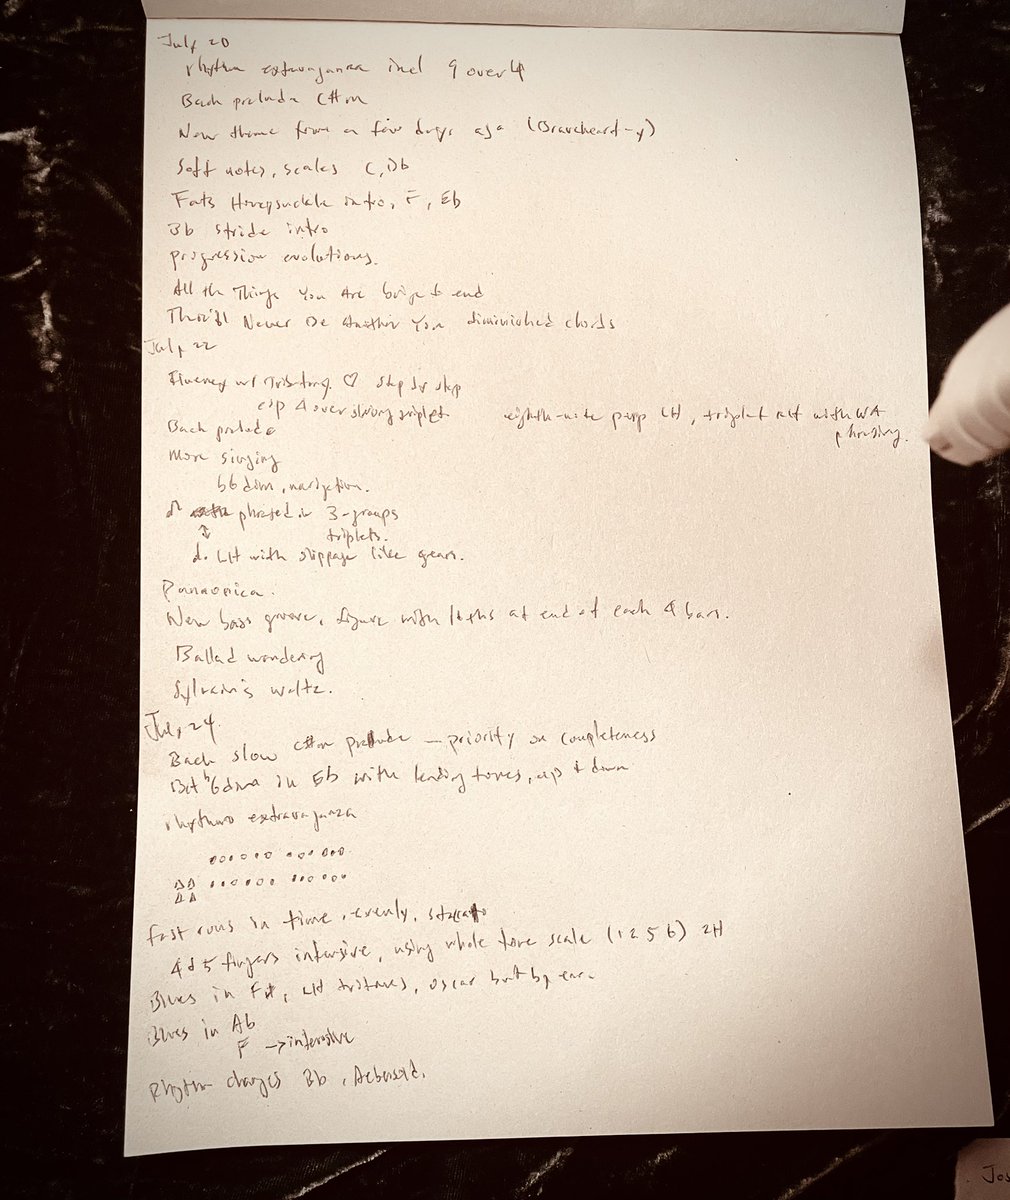 July 20
rhythm extravaganza incl 9 over 4
Bach prelude C#m
New theme from a few days ago (Braveheart-y)
Soft notes, scales C, Db
Fats Honeysuckle intro, F, Eb
Bb stride intro
progression evolutions.
All the Things You Are bridge & end
There'll Never Be Another You diminished chords
July 22
Fluency w/ Tristano, ♡ step by step
esp 4 over strong triplet eighth-note LH, triplet RH with phrasing.
Bach prelude
More singing
b6 dim, navigation.
phrased in 3-groups
↕ triplets.
d. LH with slippage like gears.
Pannonica.
New bass groove, figure with 16ths at end of each 4 bars.
Ballad wondering
Sylvain's waltz.
July 24
Bach slow C#m prelude – priority on completeness
b6 dim in Eb with leading tones, up & down
rhythmic extravaganza
fast runs in time, evenly, staccato
4 & 5 fingers intensive, using whole tone scale (1 2 5 6) 2H
Blues in F#, LH tristano, oscar but by ear.
Blues in Ab
F → intensive
Rhythm changes Bb, Aebersold.
Jos